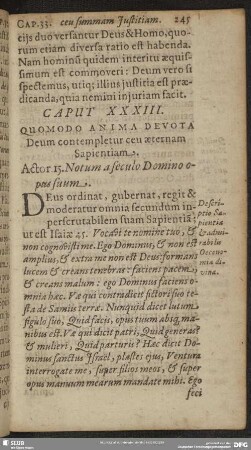 CAP.33. ceu summam Justitiam. 245
eijs duo versantur Deus & Homo, quo-
rum etiam diversa ratio est habenda.
Nam hominũ quidem interitu æquis-
simum est commoveri: Deum vero si
spectemus, utiq; illius justitia est præ-
dicanda, quia nemini injuriam facit.
CAPUT XXXIII.
QUOMODO ANIMA DEVOTA
Deum contempletur ceu æternam
Sapientiam.
Actor 15. Notum a seculo Domino o-
pus suum.
DEus ordinat, gubernat, regit &
moderatur omnia secundum in-
perscrutabilem suam Sapientiã:
ut est Isaiæ 45. Vocavi te nomine tuo, &
non cognovisti me. Ego Dominus, & non est
amplius, & extra me non est Deus: formans
lucem & creans tenebras: faciens pacem,
& creans malum: ego Dominus faciens o-
mnia hæc. Væ qui contradicit fictori suo te-
sta de Samiis terræ. Nunquid dicet lutum
figulo suo, Quid facis, opus tuum absq; ma-
nibus est. Væ qui dicit patri, Quid generas?
& mulieri, Quid parturis? Hæc dicit Do-
minus sanctus Israel, plastes ejus, Ventura
interrogate me, super filios meos, & super
opus manuum mearum mandate mihi. Ego
feci
Descri-
ptio Sa-
pientiæ
& admi-
rabilis
Oecono-
mia di-
vina.
SLUB
DFG